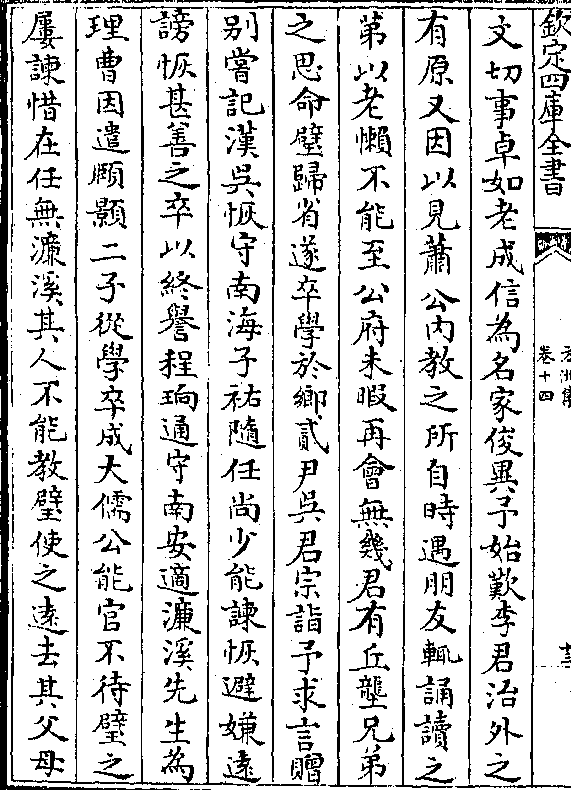 欽定四庫全書
卷十四
文切事卓如老成信為名家俊異予始歎李君治外之
有原又因以見蕭公内教之所自時遇朋友輒誦讀之
第以老懶不能至公府未暇再會無幾君有丘壟兄弟
之思命璧歸省遂卒學於鄉貳尹吳君宗詣予求言贈
别嘗記漢吳恢守南海子祐隨任尚少能諫恢避嫌遠
謗恢甚善之卒以終譽程珦通守南安適濂溪先生為
理曹因遣頥顥二子從學卒成大儒公能官不待璧之
屢諫惜在任無濂溪其人不能教璧使之逺去其父母